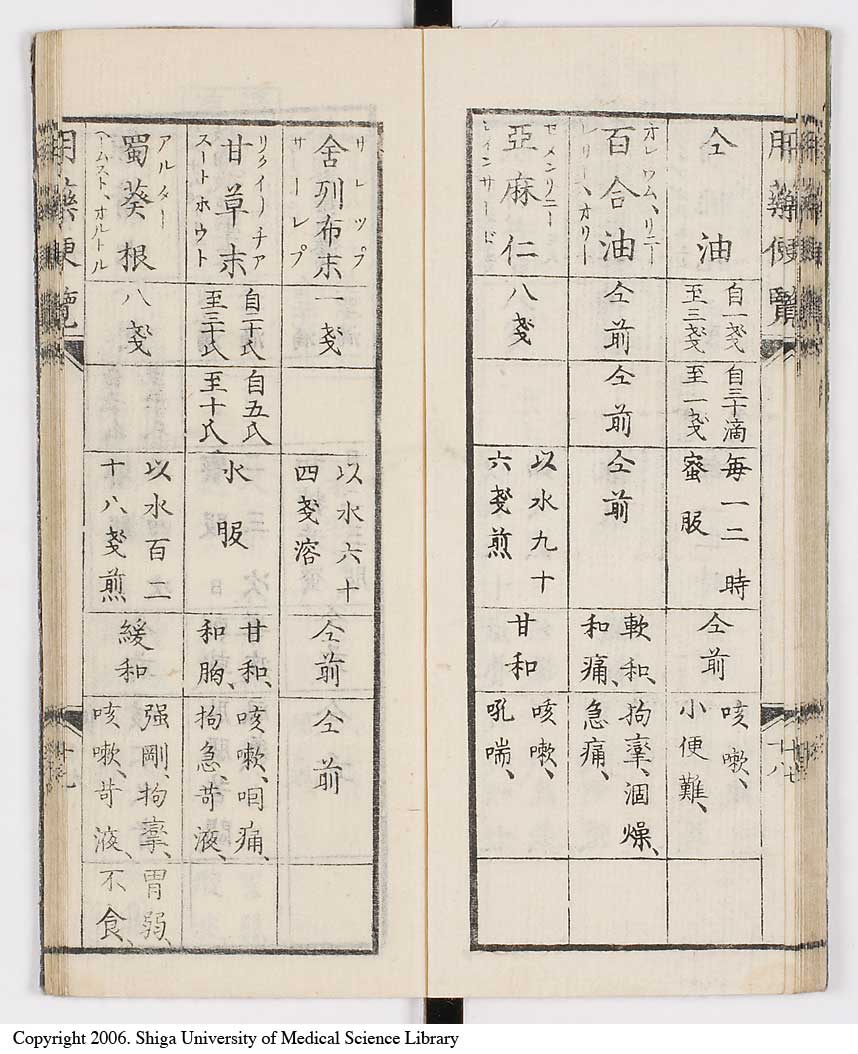 用藥便覽
仝油
自一戔
至三戔
自三十滴
至一戔
每一二時
蜜服
仝前
咳嗽、
小便難、
オレウム、リニー
百合油
レリー、オリー
仝前
仝前
仝前
軟和、
和痛、
拘攣、涸燥、
急痛、
セメンリニー
亞麻仁
レインサード
八戔
以水九十
六戔煎
甘和
咳嗽、
吼喘、
十八
サレップ
舍列布末
サーレプ
一戔
以水六十
四戔溶
仝前
仝前
リクイリチア
甘草末
スートホウト
自二十氏
至三十氏
自五氏
至十氏
水服
甘和、
和胸、
咳嗽、咽痛、
拘急、苛液、
アルター
蜀葵根
ヘームスト、オルトル
八戔
以水百二
十八戔煎
緩和
强剛、拘攣、胃弱、
咳嗽、苛液、不食、
用藥便覽
十七
Copyright 2006. Shiga University of Medical Science Library